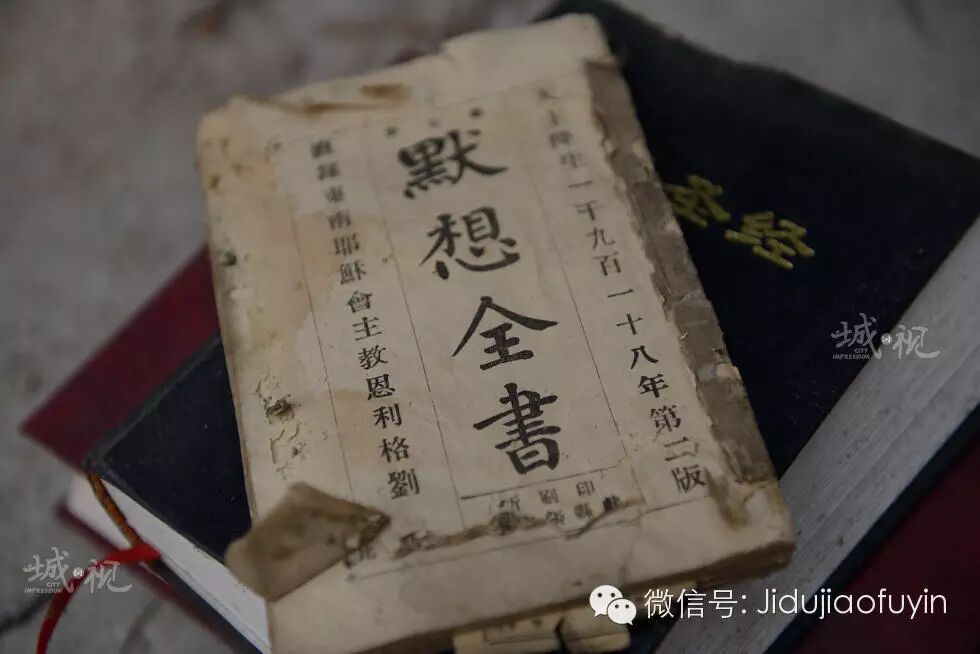 天主降生一千九百一十八年第二版
默想全書
直隸東南耶穌會主教恩利格劉
印
刷
聖經
城视
CITY
IMPRESSION
城视
CITY
IMPRESSION
微信号: Jidujiaofuyin